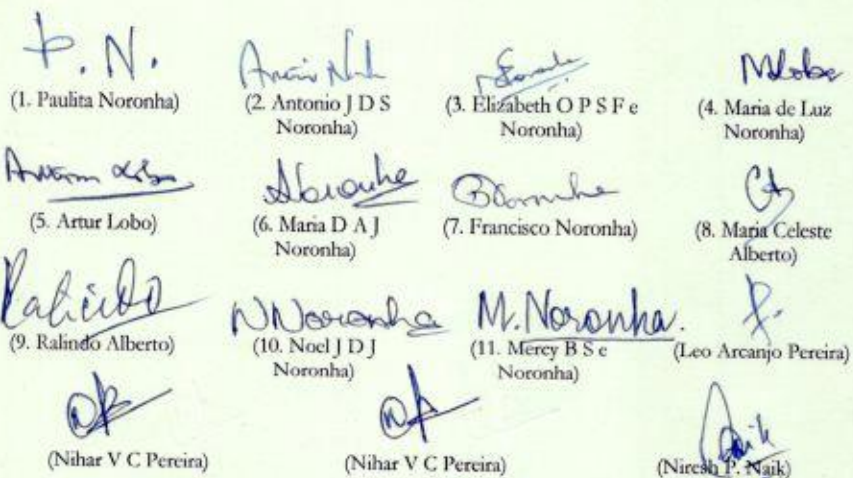 P. N.
(1. Paulita Noronha)
(2. Antonio J D S
Noronha)
(3. Elizabeth O P S F e
Noronha)
(4. Maria de Luz
Noronha)
(5. Artur Lobo)
(6. Maria D A J
Noronha)
(7. Francisco Noronha)
(8. Maria Celeste
Alberto)
(9. Ralindo Alberto)
N Noronha
(10. Noel J D J
Noronha)
M. Noronha.
(11. Mercy B S e
Noronha)
(Leo Arcanjo Pereira)
(Nihar V C Pereira)
(Nihar V C Pereira)
(Niresh P. Naik)